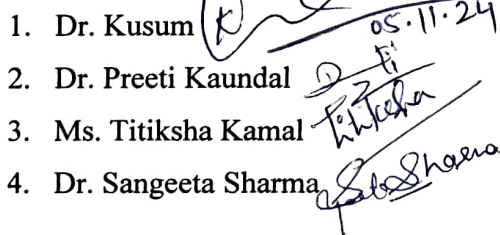 1. Dr. Kusum
05.11.24
2. Dr. Preeti Kaundal
3. Ms. Titiksha Kamal Titiksha
4. Dr. Sangeeta Sharma